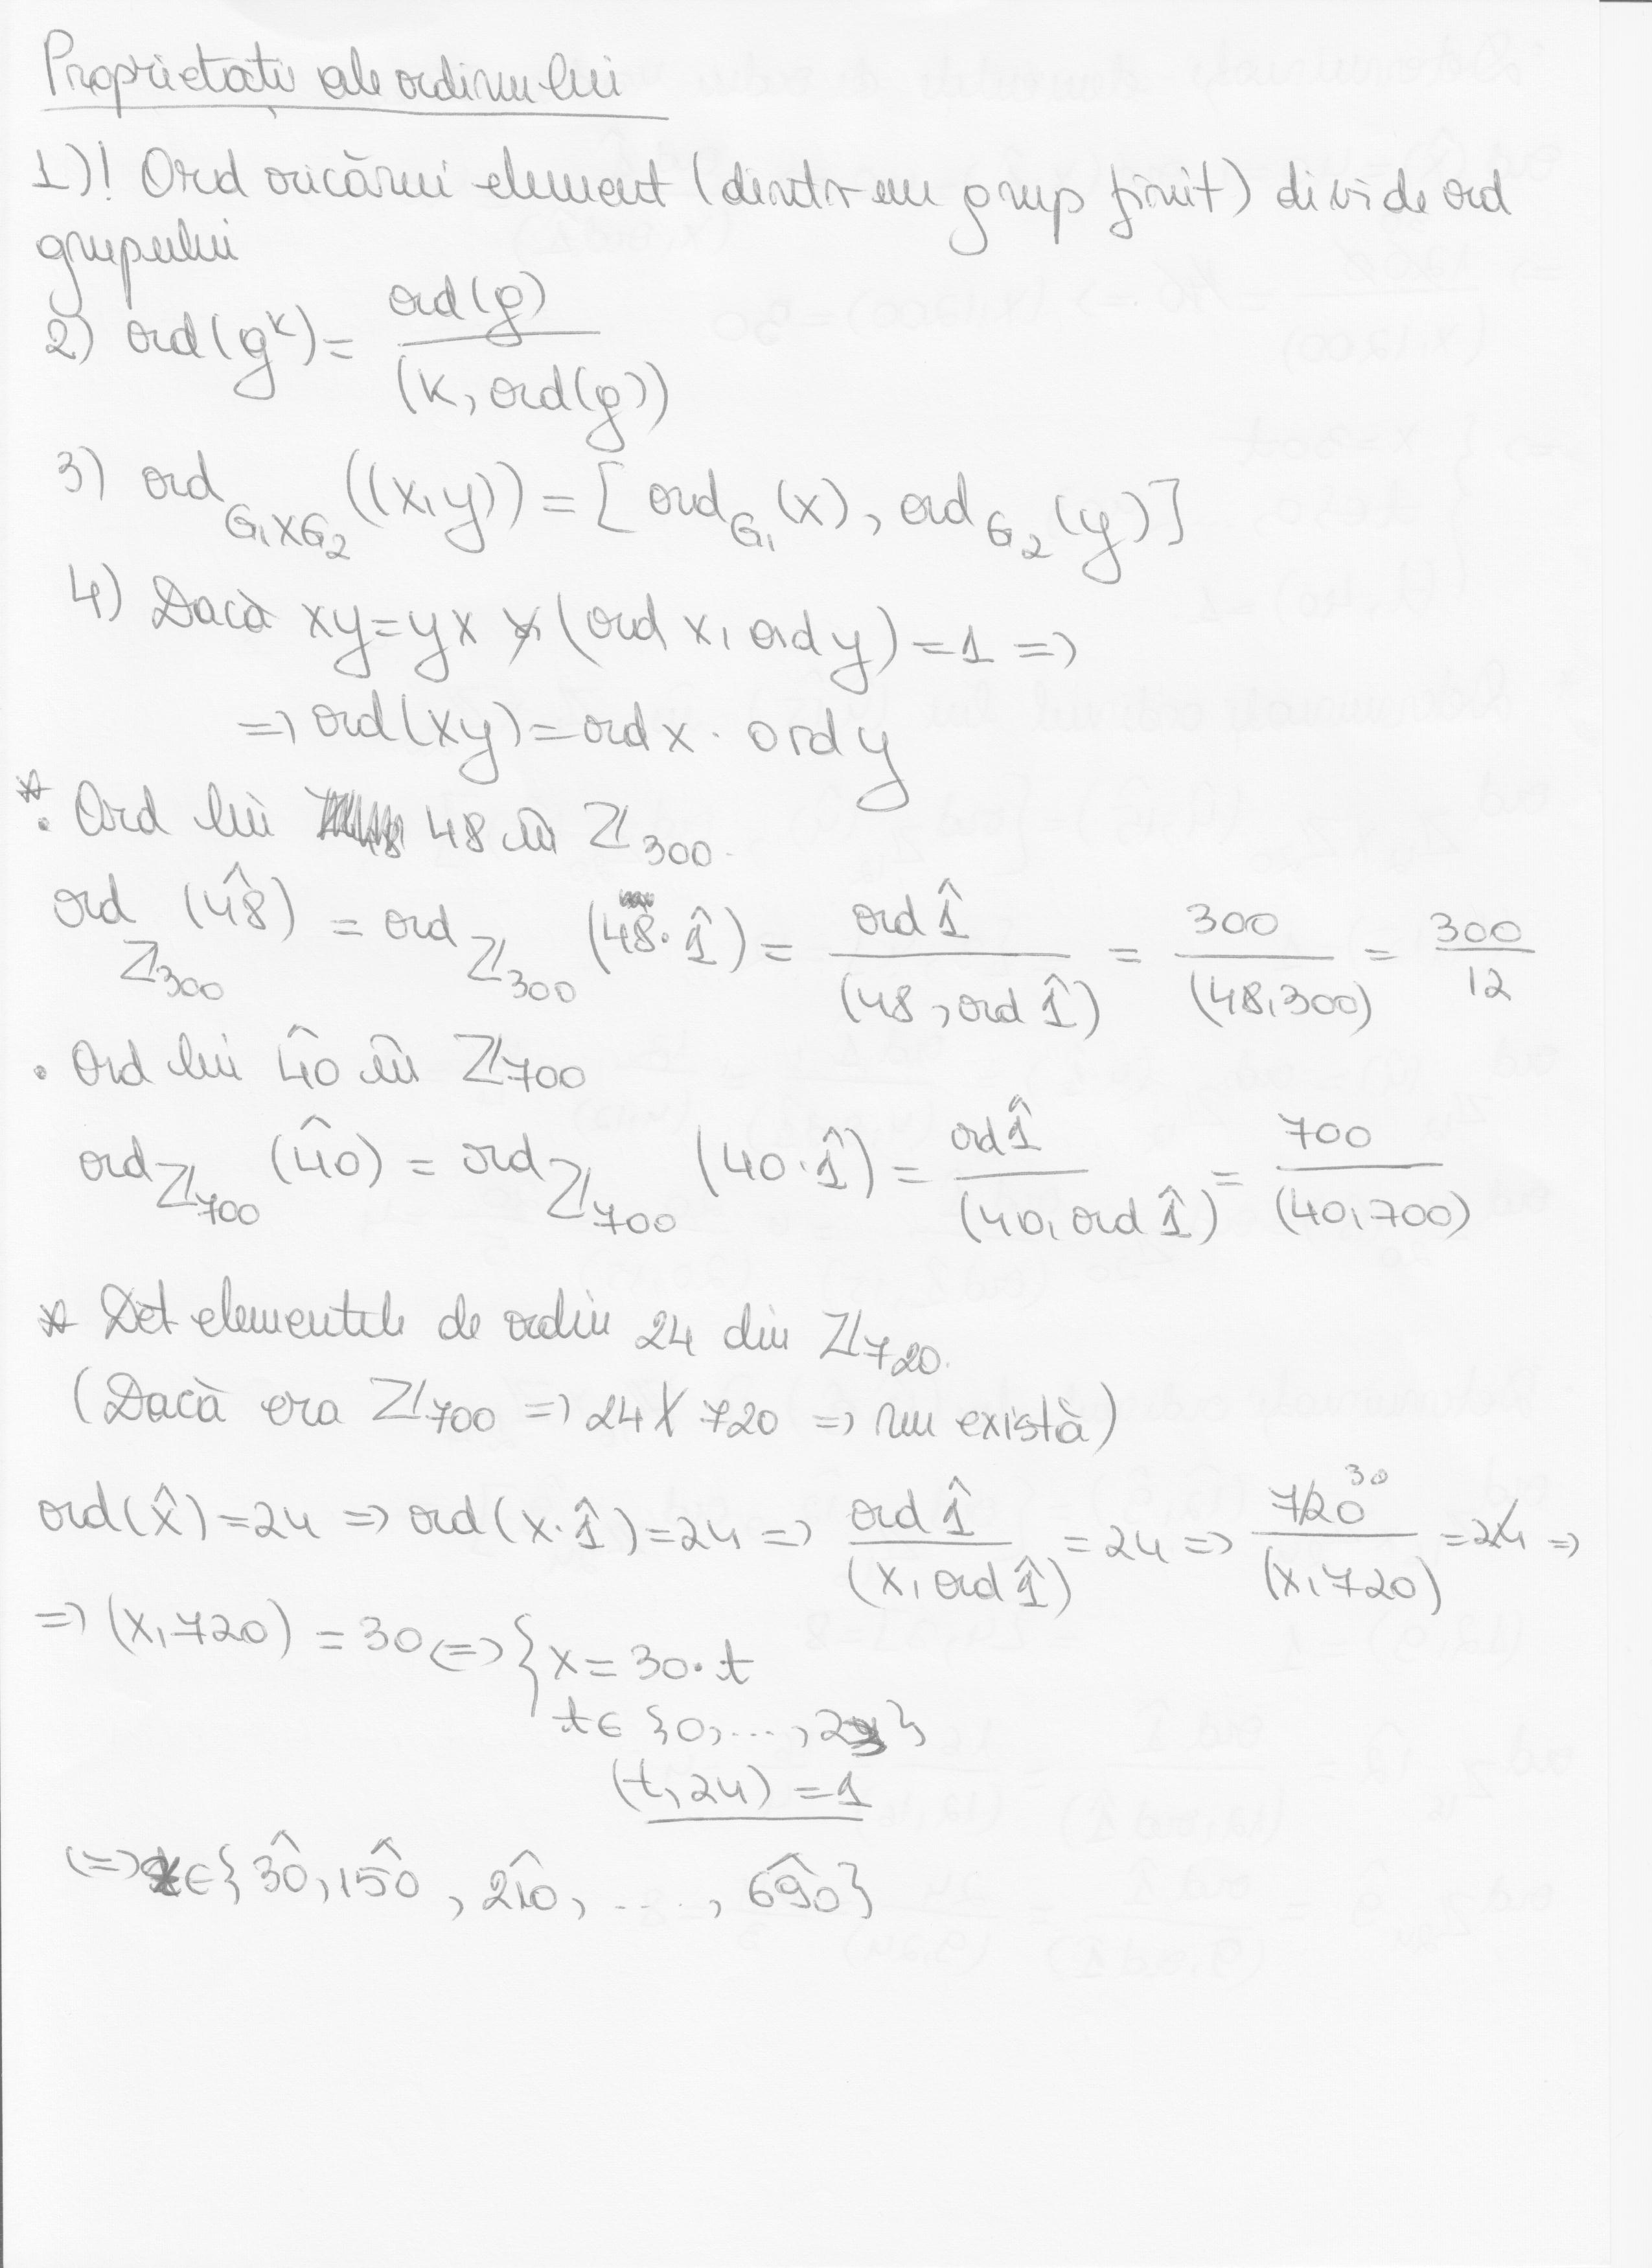 Proprietați ale ordinului
1)! Ord oricărui element (dintr-un grup finit) divide ord
grupului
2) ord(g^k) = ord(g) / (k, ord(g))
3) ord_{G₁×G₂} ((x,y)) = [ord_{G₁}(x), ord_{G₂}(y)]
4) Dacă xy=yx și (ord x, ord y) = 1 =>
=> ord(xy) = ord x · ord y
* • Ord lui 48 în ℤ_300.
ord_{ℤ_300} (48̂) = ord_{ℤ_300} (48·1̂) = ord 1̂ / (48, ord 1̂) = 300 / (48,300) = 300 / 12
• Ord lui 40̂ în ℤ_700
ord_{ℤ_700} (40̂) = ord_{ℤ_700} (40·1̂) = ord 1̂ / (40, ord 1̂) = 700 / (40,700)
* Det elementele de ordin 24 din ℤ_720.
(Dacă era ℤ_700 => 24 ∤ 720 => nu există)
ord(x̂) = 24 => ord(x·1̂) = 24 => ord 1̂ / (x, ord 1̂) = 24 => 720 30 / (x,720) = 24 =>
=> (x,720) = 30 <=> { x = 30·t
t ∈ {0, ..., 23}
(t,24) = 1
<=> x ∈ {30̂, 150̂, 210̂, ...., 690̂}